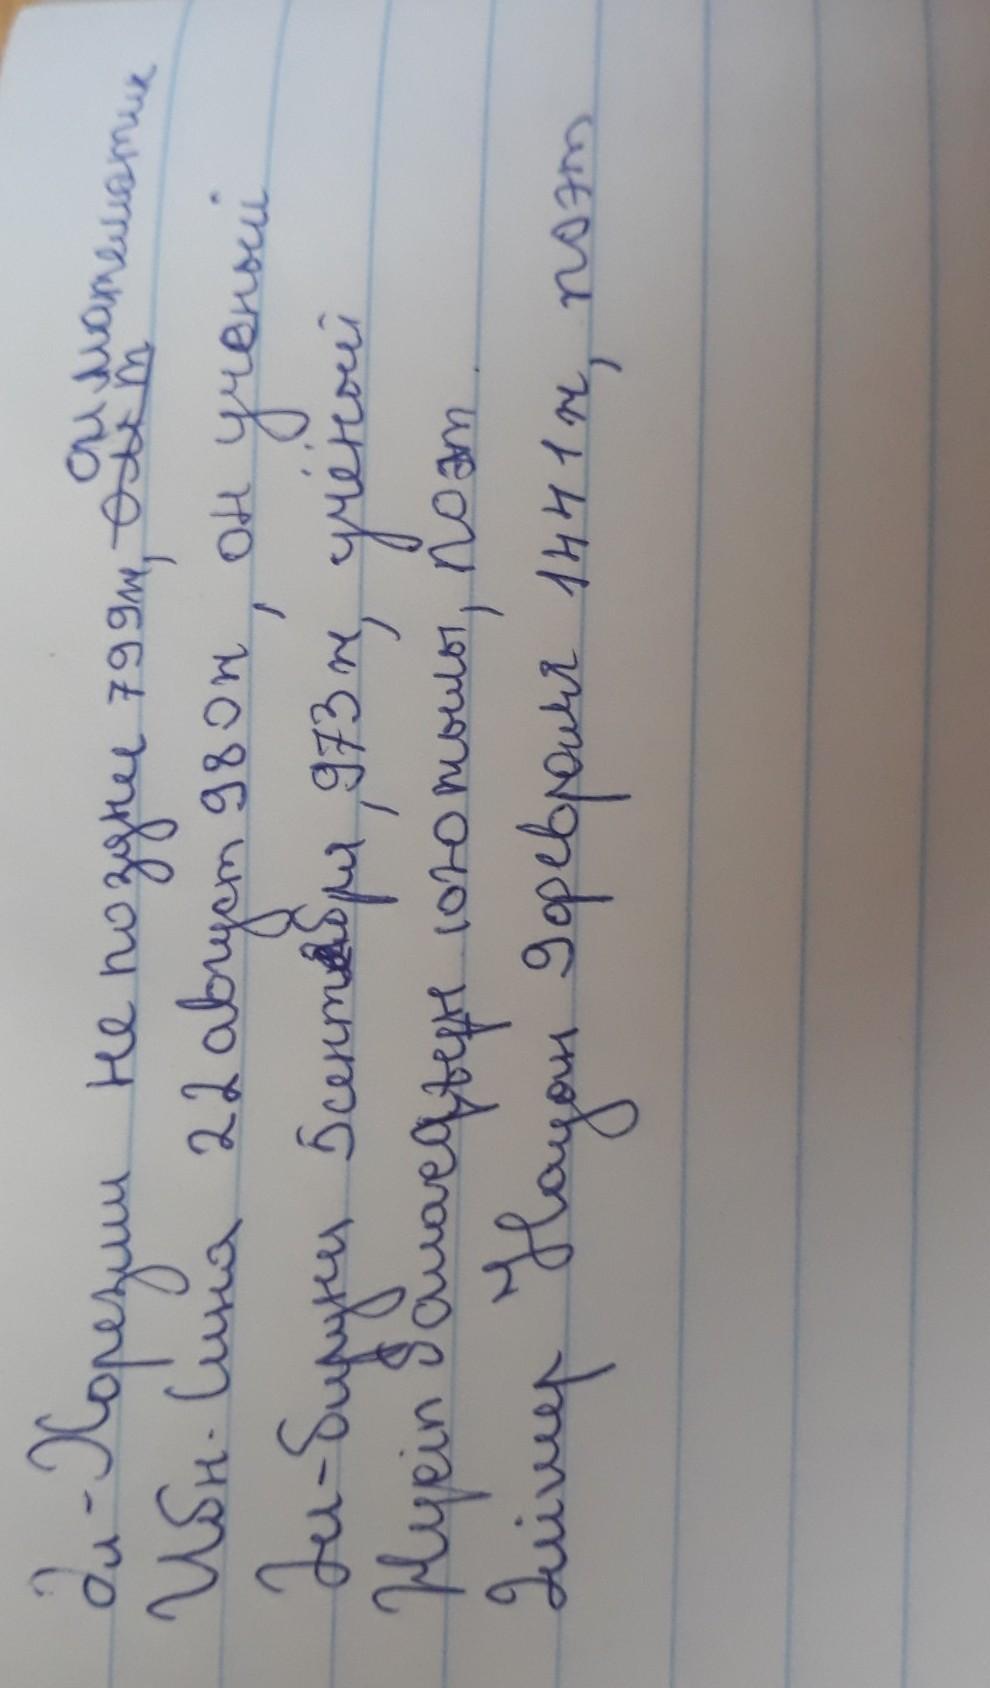 Эл-Хорезми не поздне 799ж, он математик
Ибн-Сина 22 август 980ж, он учёный
Эл-бируни 5 сентября, 973ж, учёный
Жусіп Баласағұн 1070 жылы, поэт
Әлішер Науаи 9 февраля 1441ж, поэт